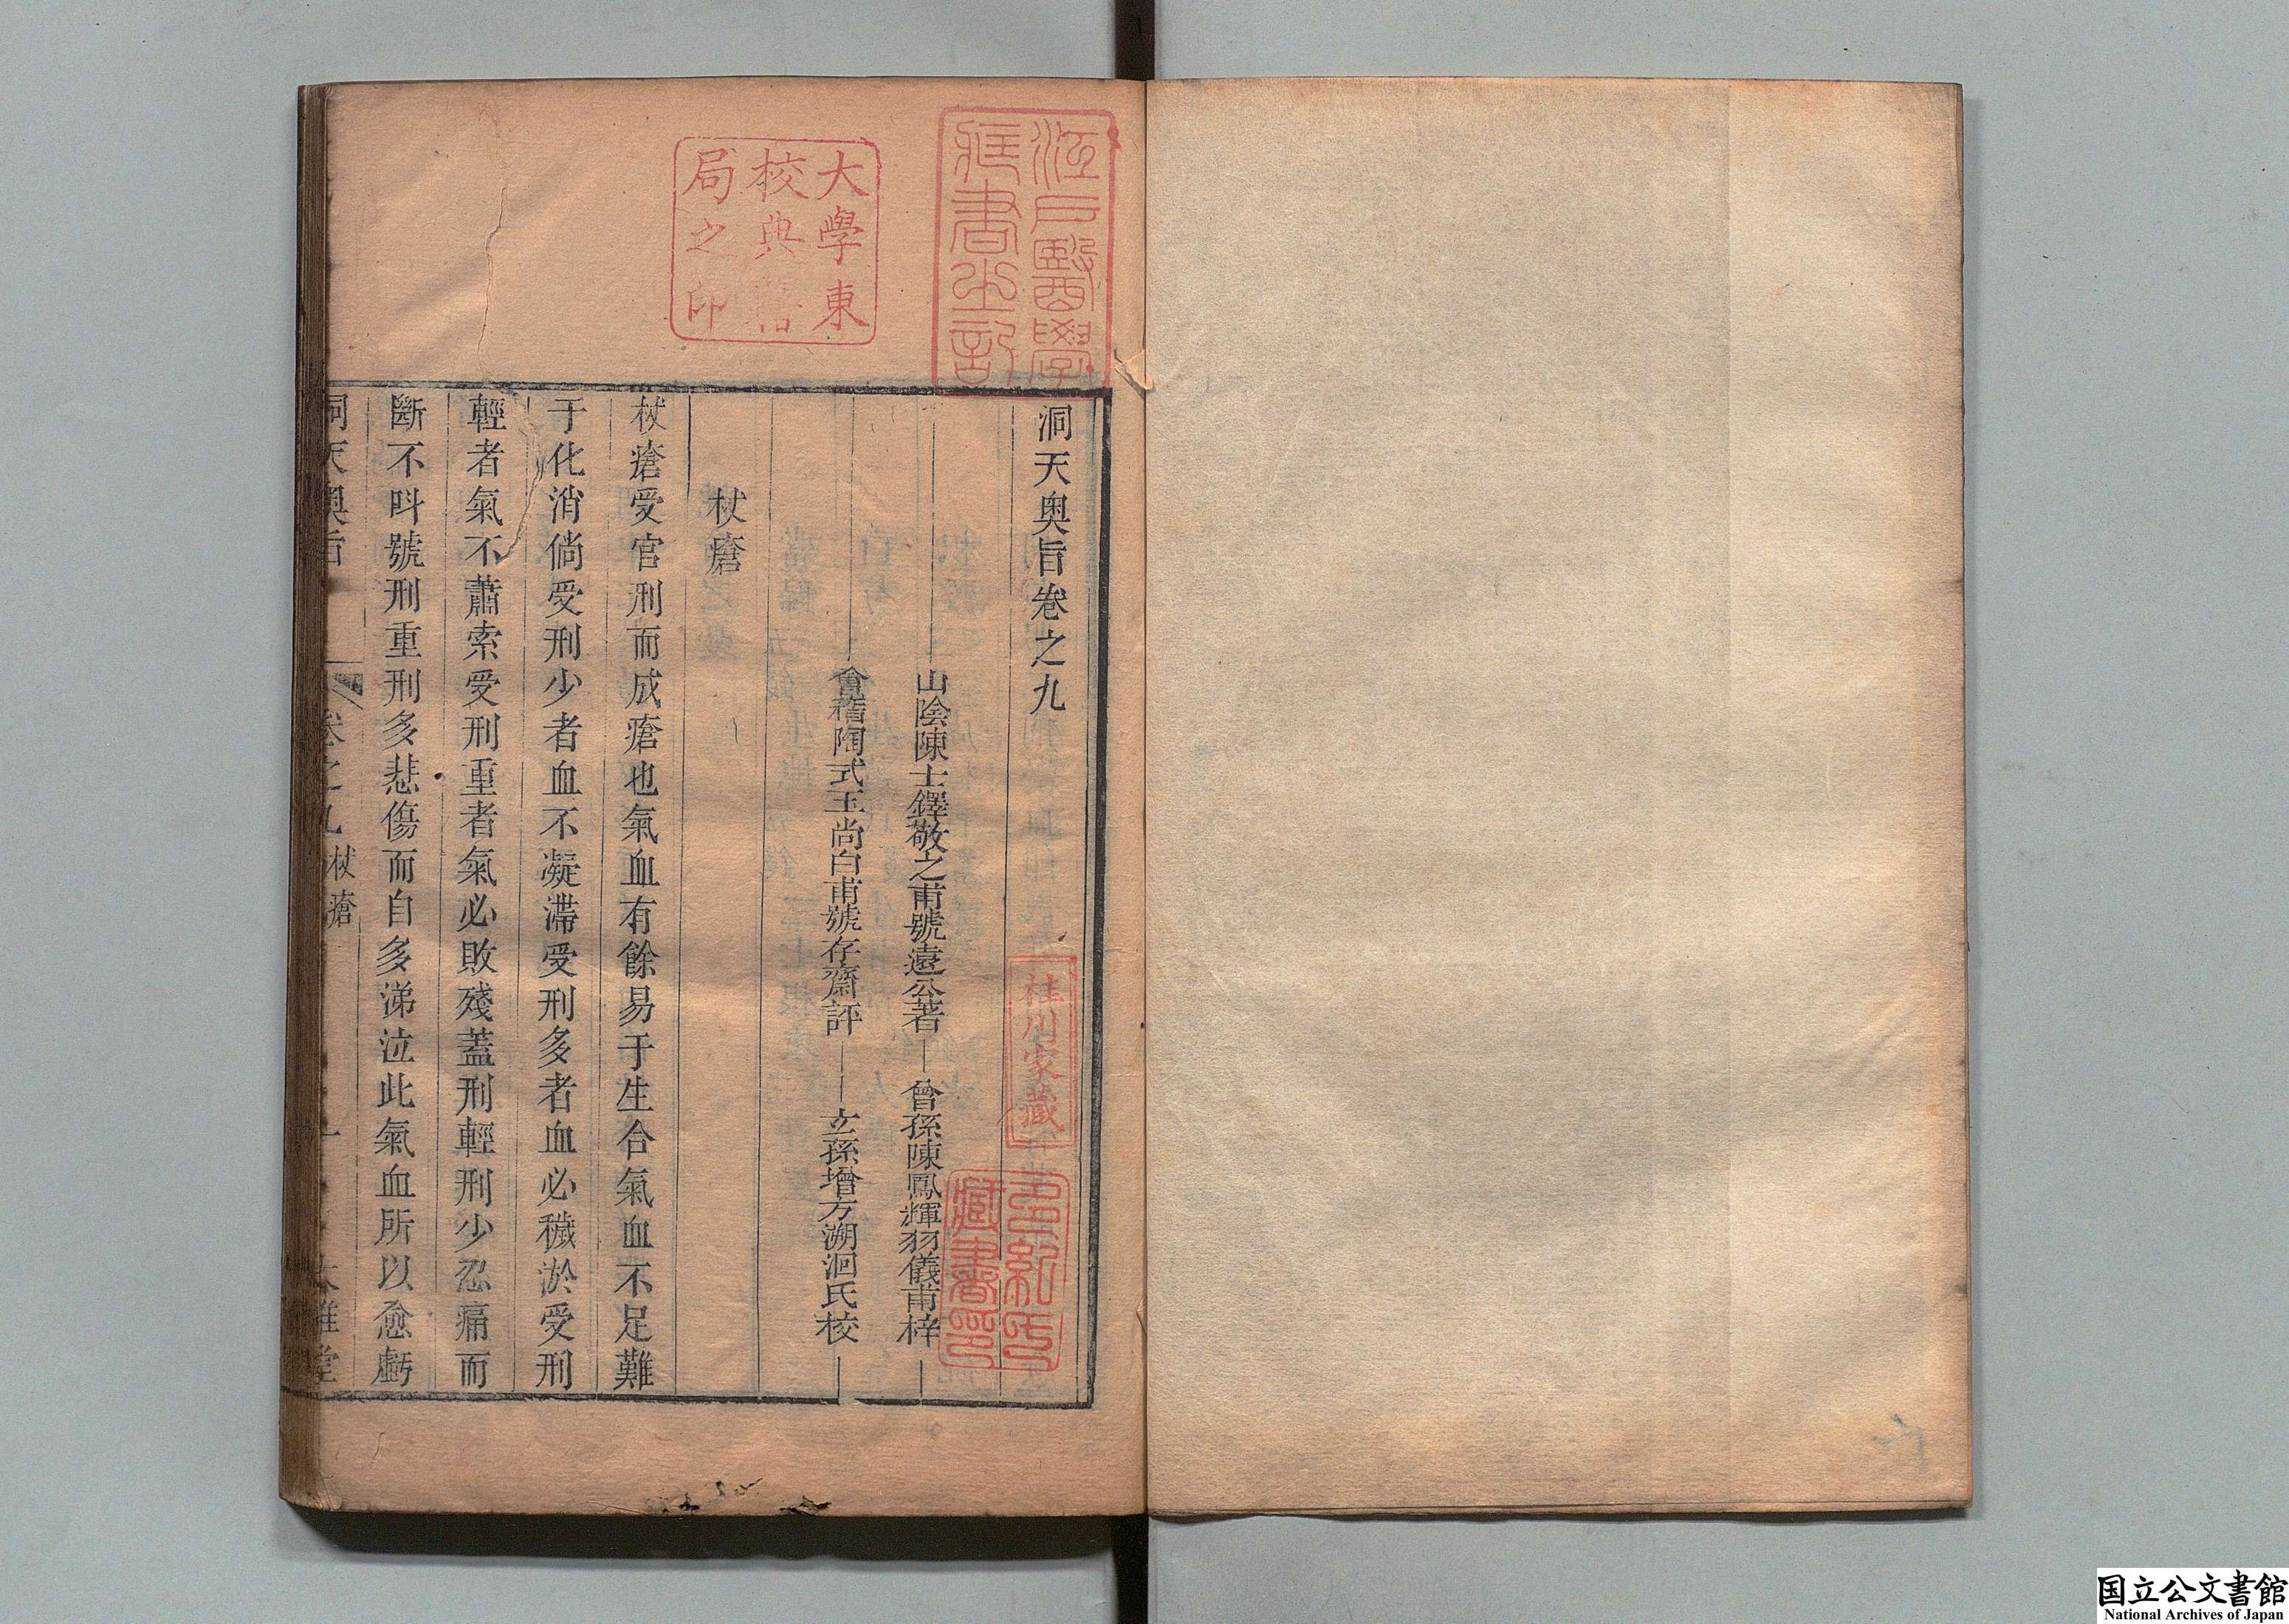 洞天奥旨卷之九
山陰陳士鐸敬之甫號遠公著
曾孫陳鳳輝羽儀甫梓
會稽陶式玉尚白甫號存齋評
玄孫增方溯洄氏校
杖瘡
杖瘡受官刑而成瘡也氣血有餘易于生合氣血不足難
于化消倘受刑少者血不凝滯受刑多者血必穢淤受刑
輕者氣不蕭索受刑重者氣必敗殘蓋刑輕刑少忍痛而
斷不呌號刑重刑多悲傷而自多涕泣此氣血所以愈虧
洞天奥旨
卷之九
杖瘡
一
大雅堂
江戶醫學
藏書之記
大學東
校典籍
局之印
桂川家藏
藏書印
国立公文書館
National Archives of Japan